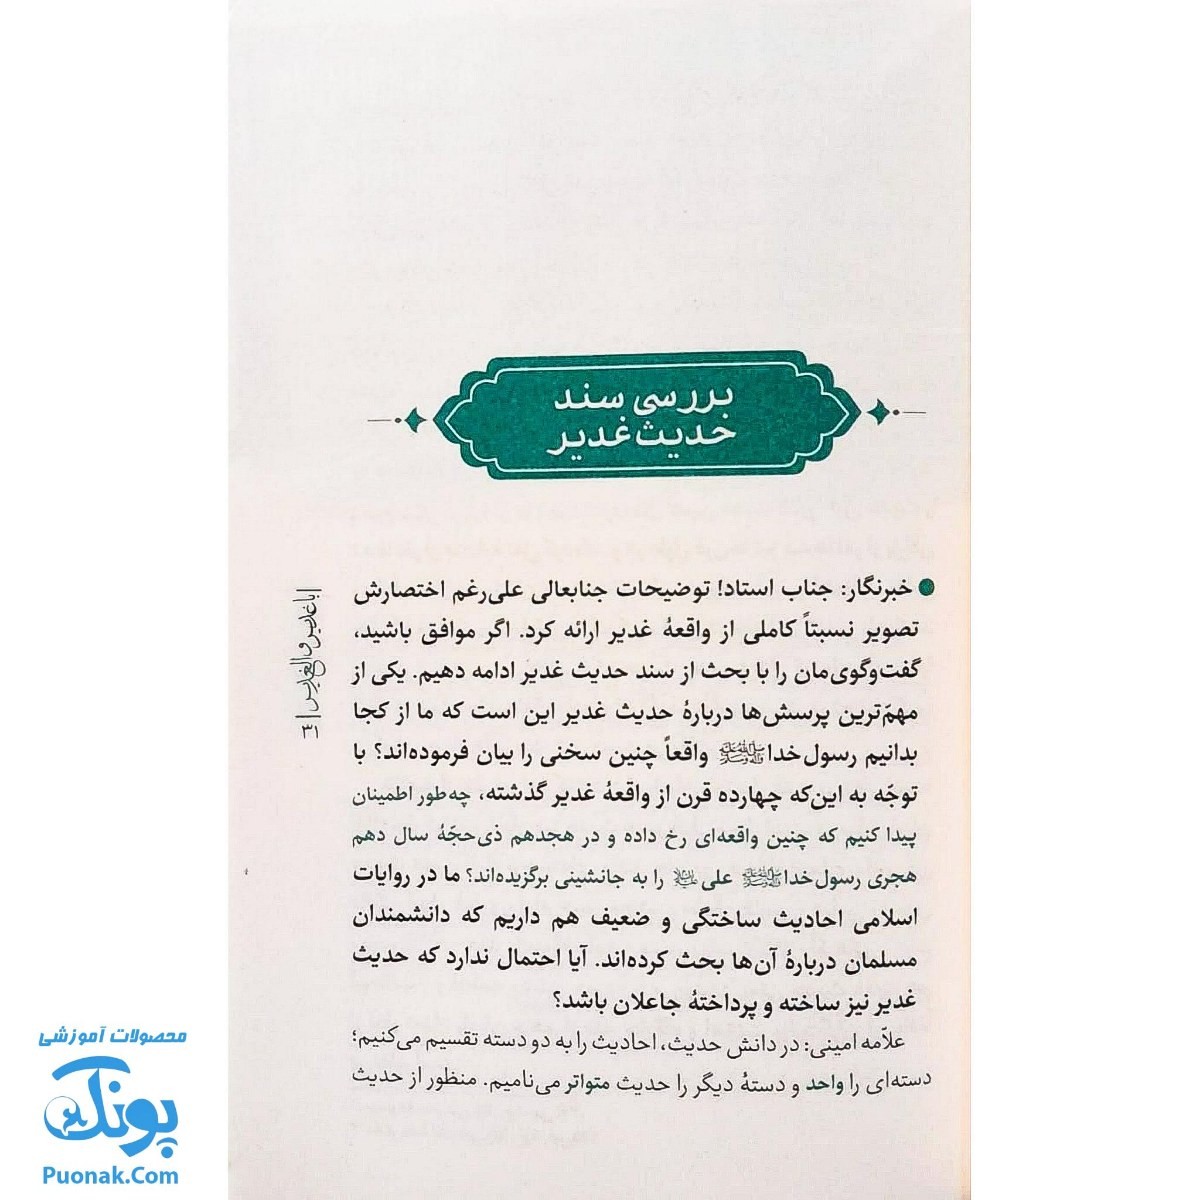 بررسی سند
حدیث غدیر
خبرنگار: جناب استاد! توضیحات جنابعالی علی‌رغم اختصارش
تصویر نسبتاً کاملی از واقعهٔ غدیر ارائه کرد. اگر موافق باشید،
گفت‌وگوی‌مان را با بحث از سند حدیث غدیر ادامه دهیم. یکی از
مهمّ‌ترین پرسش‌ها دربارهٔ حدیث غدیر این است که ما از کجا
بدانیم رسول‌خداﷺ واقعاً چنین سخنی را بیان فرموده‌اند؟ با
توجّه به این‌که چهارده قرن از واقعهٔ غدیر گذشته، چه‌طور اطمینان
پیدا کنیم که چنین واقعه‌ای رخ داده و در هجدهم ذی‌حجّهٔ سال دهم
هجری رسول‌خداﷺ علی را به جانشینی برگزیده‌اند؟ ما در روایات
اسلامی احادیث ساختگی و ضعیف هم داریم که دانشمندان
مسلمان دربارهٔ آن‌ها بحث کرده‌اند. آیا احتمال ندارد که حدیث
غدیر نیز ساخته و پرداختهٔ جاعلان باشد؟
علاّمه امینی: در دانش حدیث، احادیث را به دو دسته تقسیم می‌کنیم؛
دسته‌ای را واحد و دستهٔ دیگر را حدیث متواتر می‌نامیم. منظور از حدیث
با غدیر و الغدیر
محصولات آموزشی
پونک
Puonak.Com